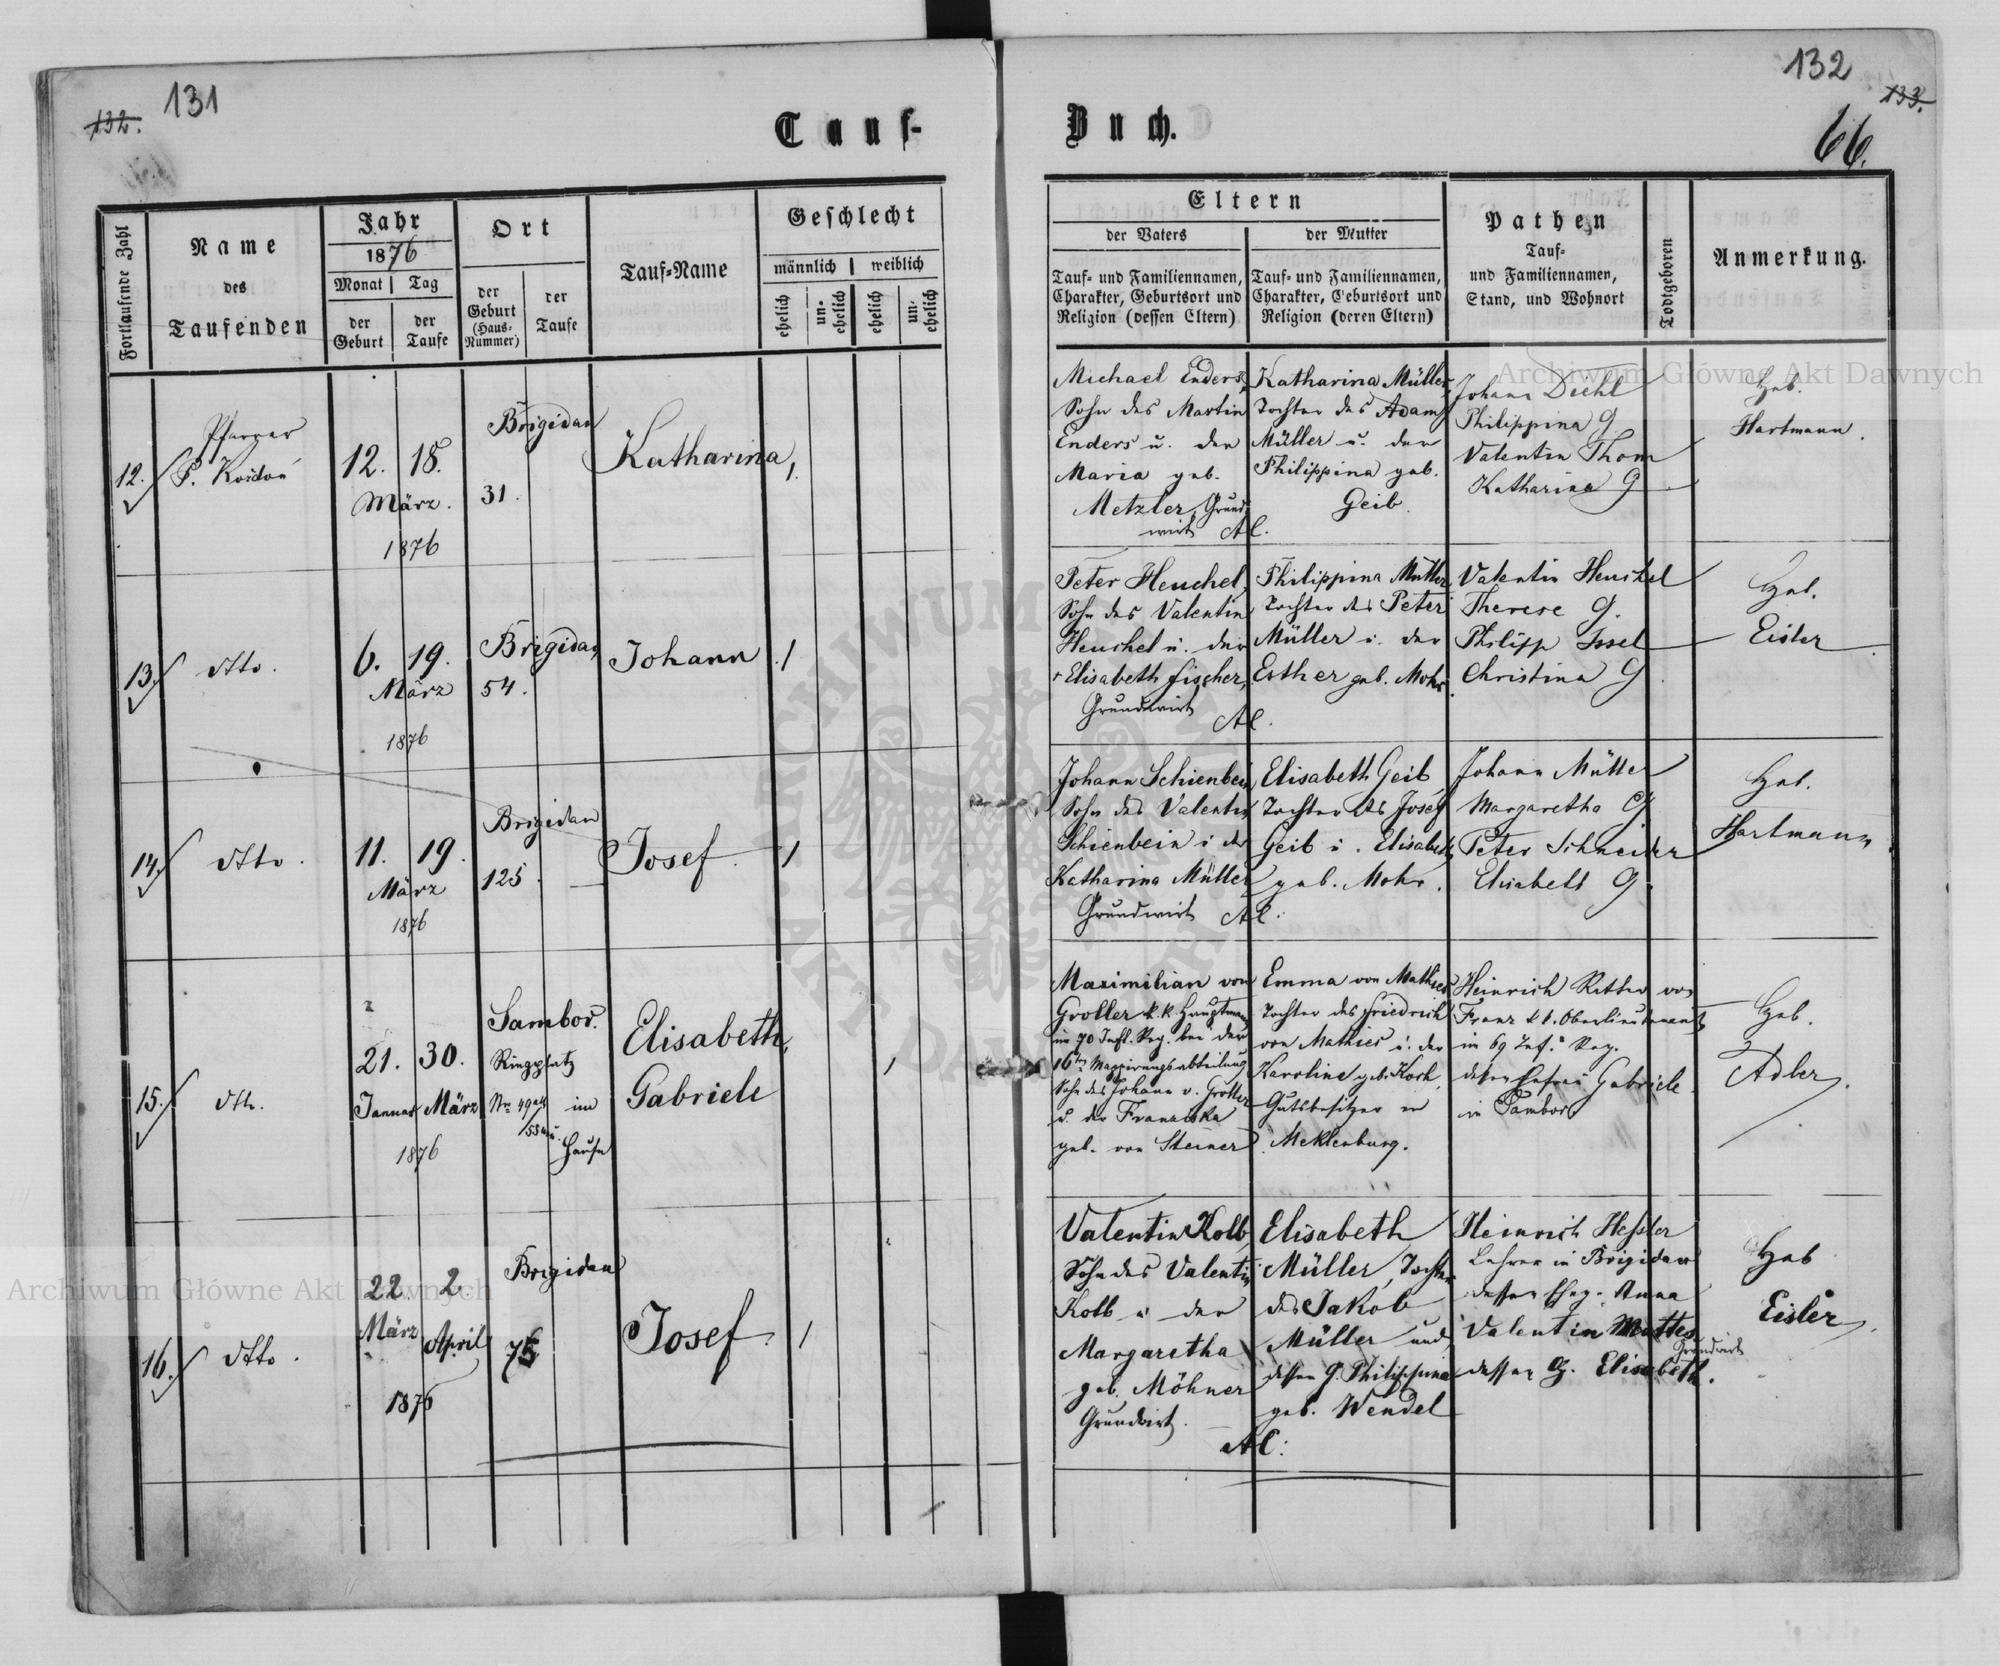 131
132.
132
133.
66.
Tauf-
Buch.
Fortlaufende Zahl
Name
des
Taufenden
Jahr
1876
Monat
Tag
der
Geburt
der
Taufe
Ort
der
Geburt
(Haus-
Nummer)
der
Taufe
Tauf-Name
Geschlecht
männlich
weiblich
ehelich
un-
ehelich
ehelich
un-
ehelich
Eltern
der Vaters
der Mutter
Tauf- und Familiennamen,
Charakter, Geburtsort und
Religion (dessen Eltern)
Tauf- und Familiennamen,
Charakter, Geburtsort und
Religion (deren Eltern)
Pathen
Tauf-
und Familiennamen,
Stand, und Wohnort
Todtgeboren
Anmerkung.
12.
Pfarrer
12. 18.
März.
1876
Brigidau
31.
Katharina
1.
Michael Enders,
Sohn des Martin
Enders u. der
Maria geb.
Metzler, Grund-
wirt
Katharina Müller,
Tochter des Adam
Müller u. der
Philippina geb.
Geib.
AC.
Johann Diehl
Philippina G.
Valentin Thom
Katharina G
Heb.
Hartmann.
13.
dtto.
6. 19.
März
1876
Brigidau
54.
Johann
1
Peter Heuchel,
Sohn des Valentin
Heuchel u. der
Elisabeth Fischer,
Grundwirt
Philippina Müller
Tochter des Peter
Müller u. der
Esther geb. Mohr.
AC.
Valentin Heuchel
Therese G.
Philipp Issel
Christina G
Heb.
Eisler
14.
dtto.
11. 19.
März
1876
Brigidau
125.
Josef
1
Johann Schienbein,
Sohn des Valentin
Schienbein u der
Katharina Müller
Grundwirt
Elisabeth Geib,
Tochter des Josef
Geib u. Elisabeth
geb. Mohr.
AC.
Johann Müller
Margaretha G
Peter Schneider
Elisabeth G.
Heb.
Hartmann
15.
dtto.
21. 30.
Januar März
1876
Sambor.
Ringplatz
Nr. 49 alt
55 neu.
im
Hause
Elisabeth,
Gabriele
1
Maximilian von
Groller k. k. Hauptmann
im 70 Inft. Reg. bei der
16ten Mappirungsabteilung
Sohn des Johann v. Groller
u. der Franziska
geb. von Steiner
Emma von Mathies
Tochter des Friedrich
von Mathies u. der
Karoline geb. Koch,
Gutsbesitzer in
Meklenburg.
Heinrich Ritter von
Franz k. k. Oberlieutenant
im 69 Inf. Reg.
dessen Ehefrau Gabriele
in Sambor.
Heb.
Adler.
16.
dtto.
22. 2.
März April
1876
Brigidau
Josef
1
Valentin Kolb,
Sohn des Valentin
Kolb u der
Margaretha
geb. Möhner
Grundwirt.
Elisabeth
Müller, Tochter
des Jakob
Müller und
dessen G. Philippina
geb. Wendel
AC.
Heinrich Hessler
Lehrer in Brigidau
dessen Eheg. Anna
Valentin Mattes
Grundwirt
dessen G. Elisabeth.
Heb
Eisler.
Archiwum Główne Akt Dawnych
Archiwum Główne Akt Dawnych
ARCHIWUM GŁÓWNE AKT DAWNYCH